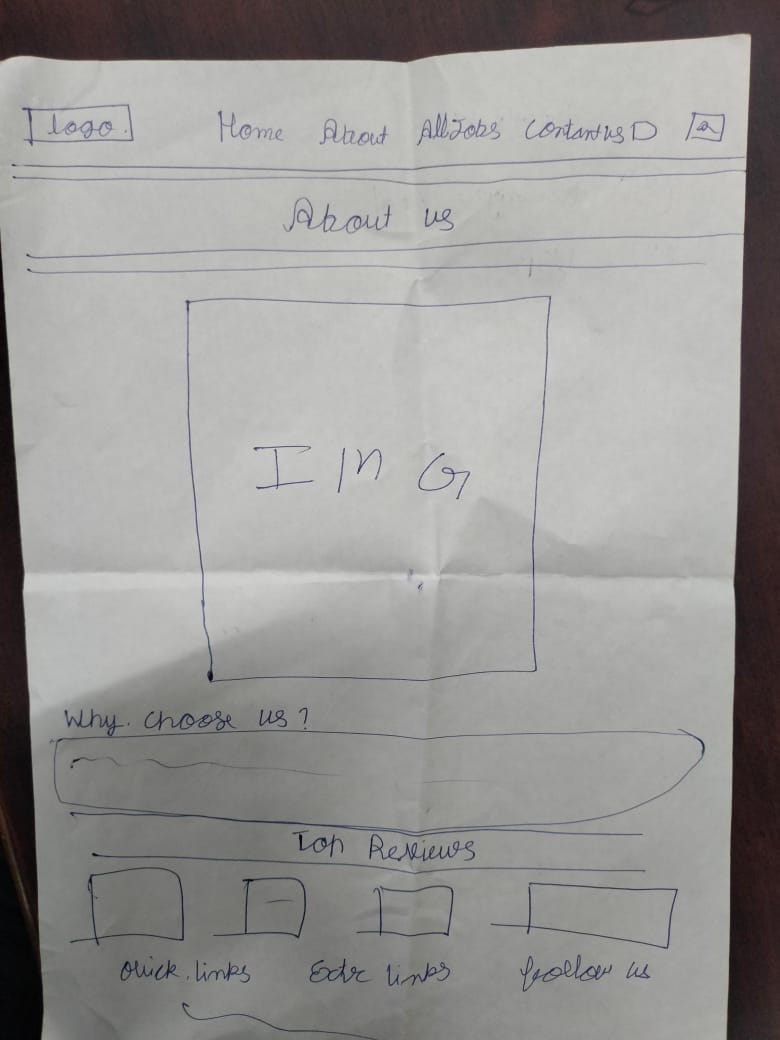 logo.
Home About All Jobs Contant us
About us
IMG
Why. choose us?
Top Reviews
Quick. links Extr links follow us